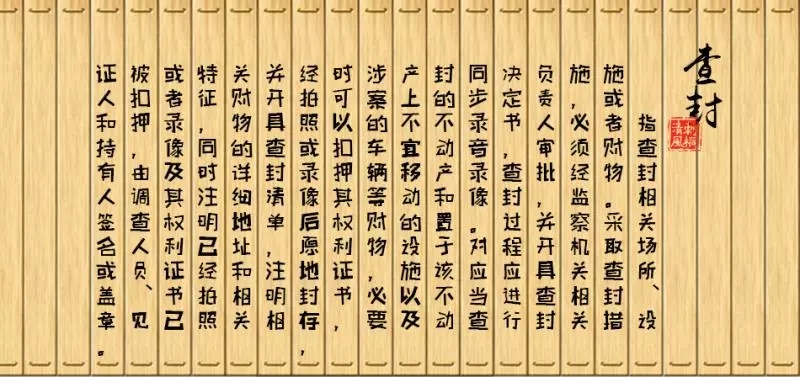 查封
清风
指查封相关场所、设
施或者财物。采取查封措
施，必须经监察机关相关
负责人审批，并开具查封
决定书，查封过程应进行
同步录音录像。对应当查
封的不动产和置于该不动
产上不宜移动的设施以及
涉案的车辆等财物，必要
时可以扣押其权利证书，
经拍照或录像后愿地封存，
并开具查封清单，注明相
关财物的详细地址和相关
特征，同时注明已经拍照
或者录像及其权利证书已
被扣押，由调查人员、见
证人和持有人签名或盖章。